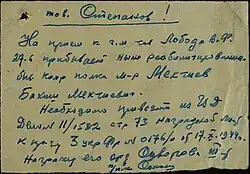 тов. Степанов!
На прием к т.м. тов Лобода В.Ф.
27.6 прибывает ныне реабилитированный
быв. ком. полка м-р Мехтиев
Бахыш Мехтиевич.
Необходимо привезти из ЦД
Дело № 11/1582 стр 73 наградной лист
к пр-зу 3 укр Фр № 0176/н от 17.X.1944г.
Награжд. его орд Суворова III ст